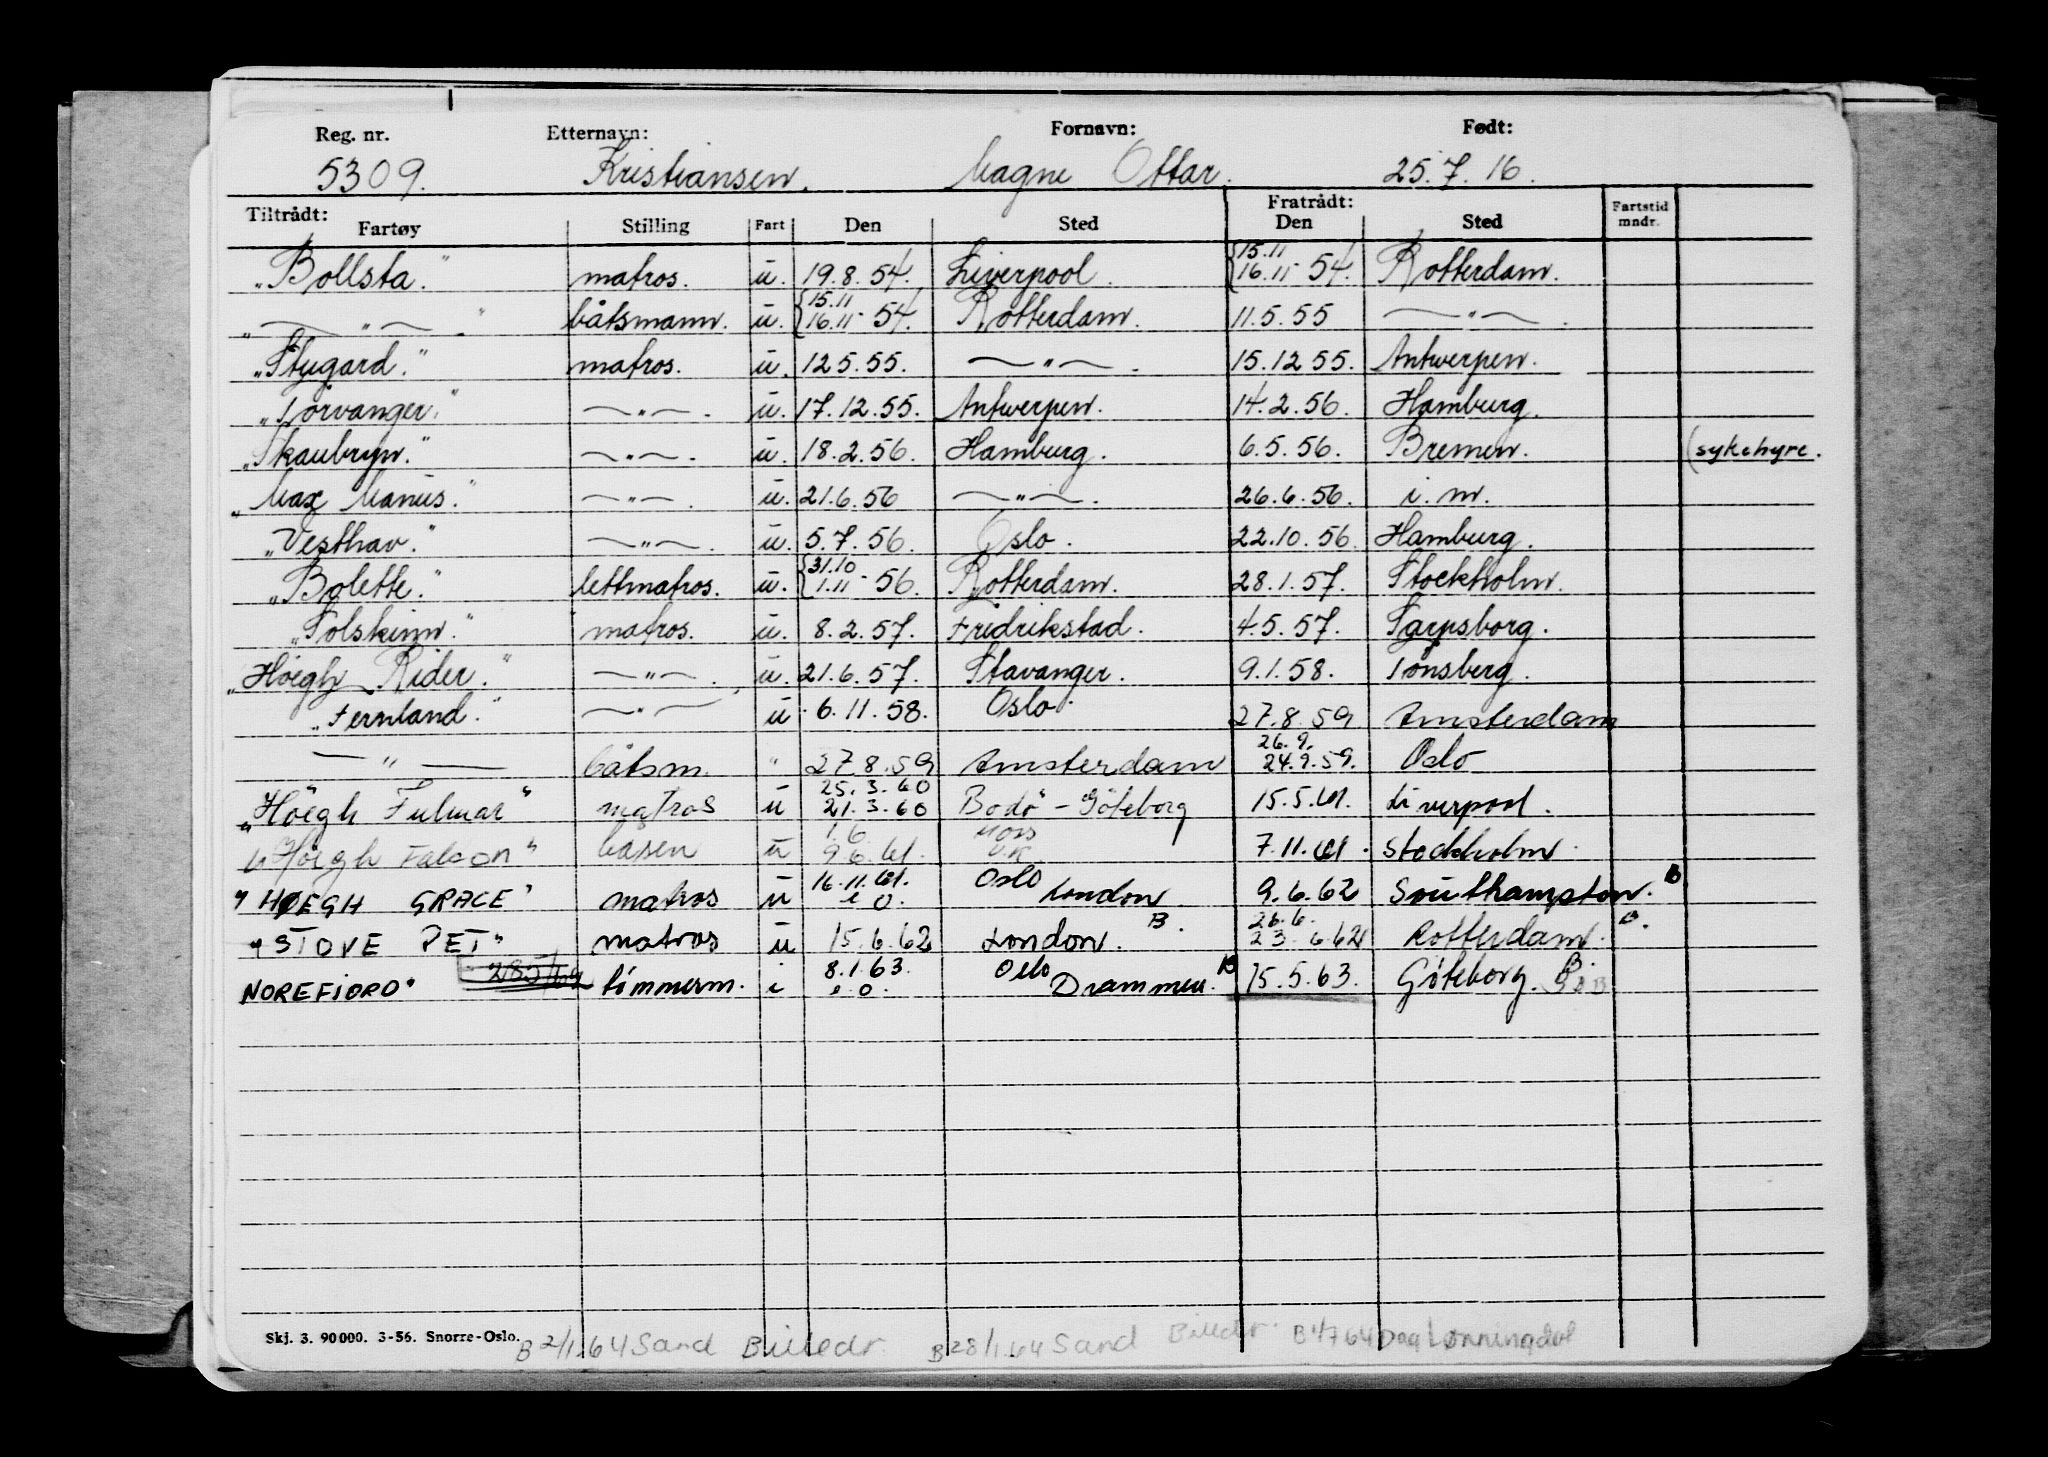 Reg. nr. Etternavn: Fornavn: Født:
5309. Kristiansen. Magne Ottar. 25.7.16.
Tiltrådt: Fratrådt: Fartstid mndr.
Fartøy Stilling Fart Den Sted Den Sted
"Bollsta." matros. u. 19.8.54. Liverpool. {15.11 16.11- 54. Rotterdam.
" — " — . " båtsmann. u. {15.11 16.11- 54. Rotterdam. 11.5.55 — " — .
"Stugard." matros. u. 12.5.55. — " — . 15.12.55. Antwerpen.
"Torvanger." — " — . u. 17.12.55. Antwerpen. 14.2.56. Hamburg.
"Skaubryn." — " — . u. 18.2.56. Hamburg. 6.5.56. Bremen. (sykehyre.
"Max Manus." — " — . u. 21.6.56 — " — . 26.6.56. i.m.
"Vesthav." — " — . u. 5.7.56. Oslo. 22.10.56. Hamburg.
"Bolette." lettmatros. u. {31.10 1.11- 56. Rotterdam. 28.1.57. Stockholm.
"Solskinn." matros. u. 8.2.57. Fredrikstad. 4.5.57. Sarpsborg.
"Höegh Rider." — " — . u. 21.6.57. Stavanger. 9.1.58. Tönsberg.
"Fernland." — " — u 6.11.58. Oslo. 27.8.59 Amsterdam
— " — båtsm. " 27.8.59 Amsterdam 26.9. 24.9.59. Oslo
"Höegh Fulmar" matros u 25.3.60 21.3.60 Bodö - Göteborg 15.5.61. Liverpool.
"Höegh Falcon" båsen u 1.6 9.6.61. Moss U.K 7.11.61. Stockholm.
"HØEGH GRACE" matros u 16.11.61. e.o. Oslo London 9.6.62 Southampton. B
"STOVE PET" matros u 15.6.62 London. B. 26.6. 23.6.62 Rotterdam. B.
NOREFJORD" 285/64 tømmerm. i 8.1.63. e.o. Oslo Drammen. B 15.5.63. Göteborg. B.
Skj. 3. 90000. 3-56. Snorre-Oslo.
B 2/1.64 Sand Billedr. B 28/1.64 Sand Billedr. B 1/7 64 Dag Lønningdal